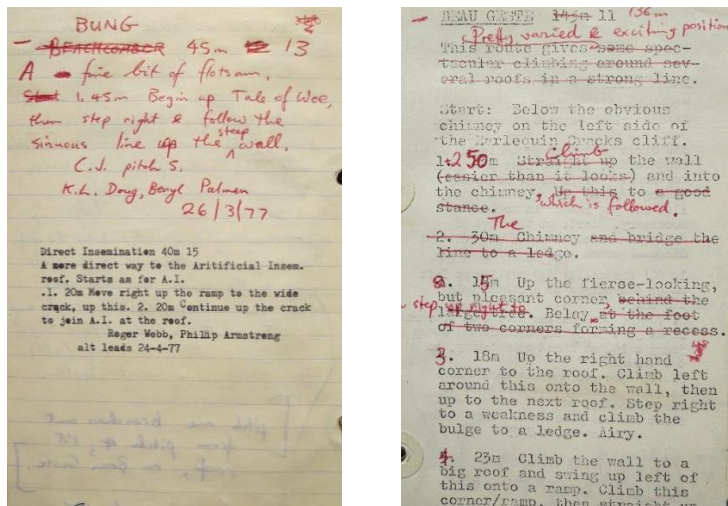 BUNG
BEACHCOMBER 45m 13
A fine bit of flotsam.
Start 1. 45m Begin up Tale of Woe,
then step right & follow the
sinuous line up the steep wall.
C.J. pitch S.
K.L. Doug, Beryl Palmer
26/3/77
Direct Insemination 40m 15
A more direct way to the Aritificial Insem.
roof. Starts as for A.I.
.1. 20m Move right up the ramp to the wide
crack, up this. 2. 20m Continue up the crack
to join A.I. at the roof.
Roger Webb, Phillip Armstrong
alt leads 24-4-77
BEAU GESTE 143m 11 136m
Pretty varied & exciting position
This route gives some spec-
tacular climbing around sev-
eral roofs in a strong line.
Start: Below the obvious
chimney on the left side of
the Harlequin Cracks cliff.
1. 50m Straight Climb up the wall
(easier than it looks) and into
the chimney. Up this to a good
stance. which is followed.
The
2. 30m Chimney and bridge the
line to a ledge.
2. 15m Up the fierce-looking,
but pleasant corner, behind the
step up right to
large tree. Belay at the foot
of two corners forming a recess.
3. 18m Up the right hand
corner to the roof. Climb left
around this onto the wall, then
up to the next roof. Step right
to a weakness and climb the
bulge to a ledge. Airy.
4. 23m Climb the wall to a
big roof and swing up left of
this onto a ramp. Climb this
corner/ramp, then straight up